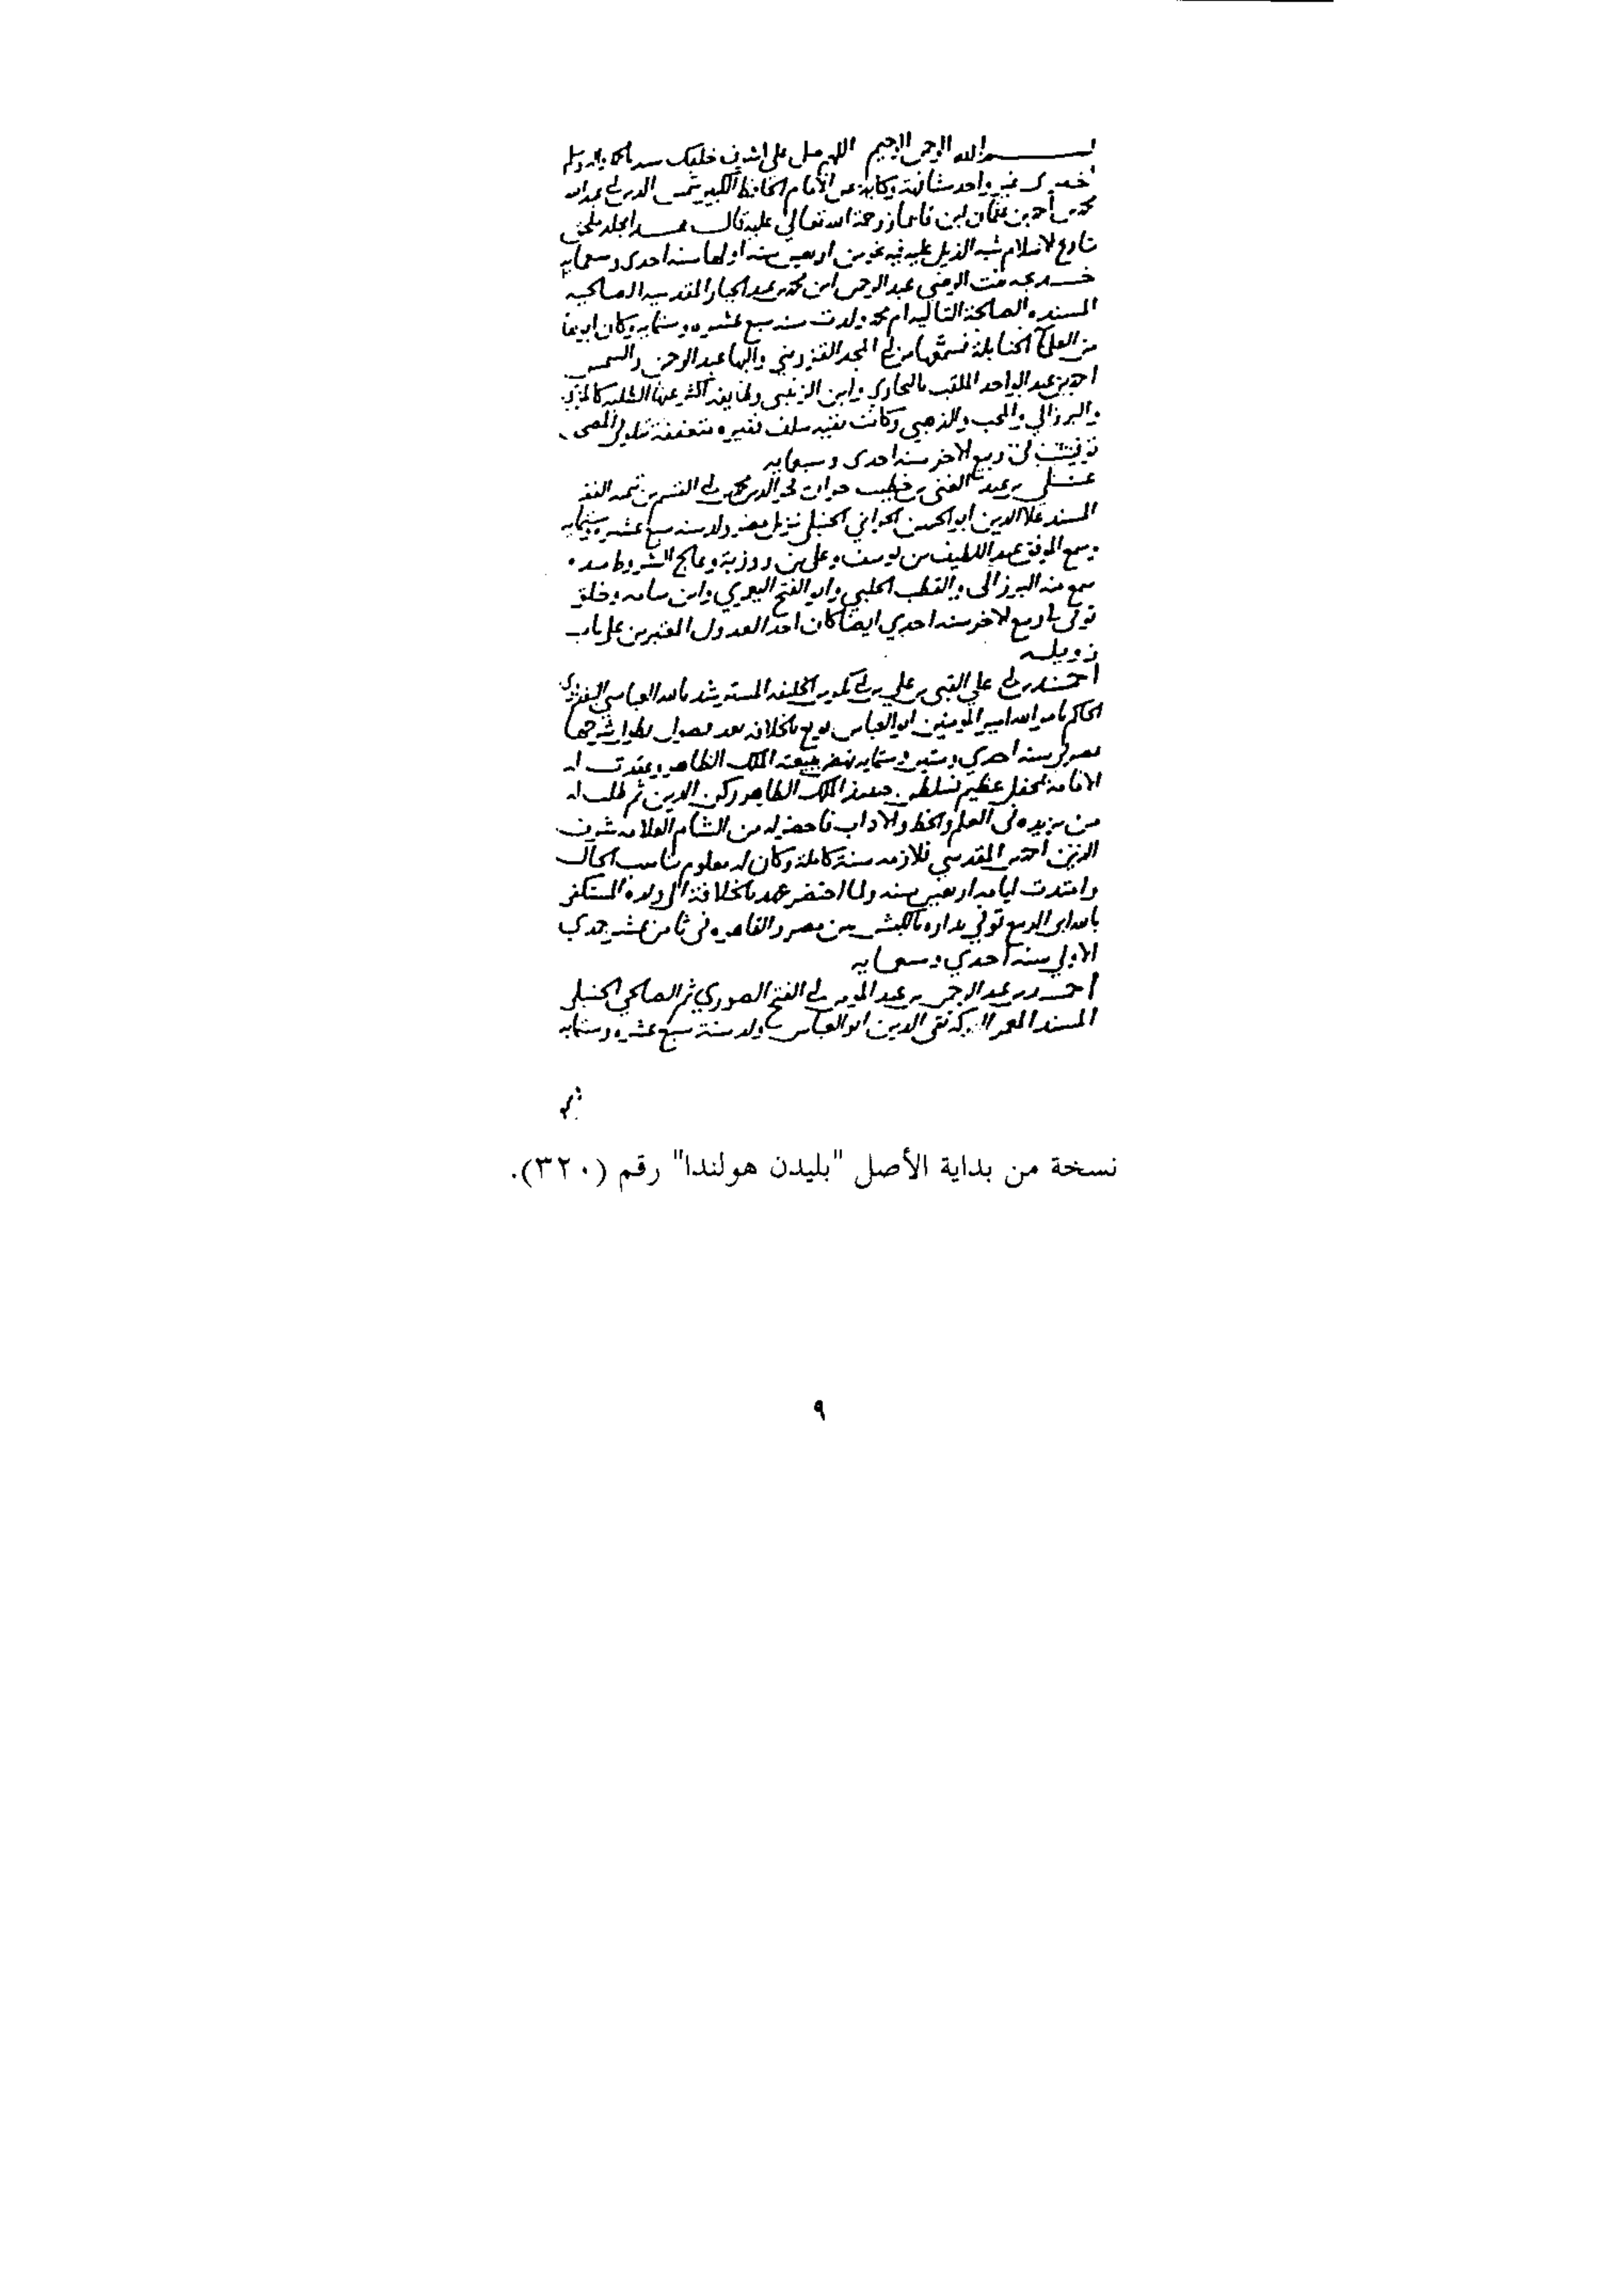 بسم الله الرحمن الرحيم اللهم صل على اشرف خلقك سيدنا محمد واله وسلم
اخبرني غير واحد مشافهة وكتابة عن الامام الحافظ الكبير شمس الدين ابي عبد الله
محمد بن احمد بن عثمان بن قايماز رحمة الله تعالى عليه قال هذا مجلد ملحق
تاريخ الاسلام شبه الذيل عليه فيه نحو من اربعين سنه اولها سنه احدى وسبعمايه
خديجه بنت الرضي عبد الرحمن ابن محمد بن عبد الجبار المقدسيه الصالحيه
المسنده الصالحة التاليه ام محمد ولدت سنه سبع عشره وستمايه وكان ابوها
من العلمآ الحنابلة فسمعها من المجد القزويني والبها عبد الرحمن والشمس
احمد بن عبد الواحد الملقب بالبخاري وابن الزبيدي وطايفه اكثر عنها الطلبه كالمزي
والبرزالي والمحب والذهبي وكانت بقيه سلف فقيره متعففة
توفيت في ربيع الاخر سنه احدى وسبعمايه
علي بن عبد الغني بن خطيب حران فخر الدين محمد بن ابي القسم بن تيميه الفقيه
المسند علا الدين ابو الحسن الحراني الحنبلي نزيل مصر ولد سنه سبع عشره وستمايه
وسمع الموفق عبد اللطيف بن يوسف وعلي بن روزبة وعالج الشروط مده
سمع منه البرزالي والقطب الحلبي وابو الفتح اليعمري وابن سامه وخلق
توفي في ربيع الاخر سنه احدي ايضا كان احد العدول المعتبرين على باب
زويله
احمد بن ابي علي القبي بن علي بن ابي بكر بن الخليفه المسترشد بالله العباسي البغدادي
الحاكم بامر الله امير المومنين ابو العباس بويع بالخلافه بعد
مصر في سنه احدي وستين وستمايه نهض ببيعته الملك الظاهر وعقدت له
الامامة بمحفل عظيم فسلطن حينئذ الملك الظاهر ركن الدين ثم طلب له
من يزيده في العلم والخط والاداب فاحضر له من الشام العلامه شرف
الدين احمد المقدسي فلازمه سنة كاملة وكان له معلوم يناسب الحال
وامتدت ايامه اربعين سنه ولما احتضر عهد بالخلافة الى ولده المستكفي
بالله ابي الربيع توفي بداره بالكبش بين مصر والقاهره في ثامن عشر جمدي
الاولى سنه احدي وسبعمايه
احمد بن عبد الرحمن بن عبد المومن بن ابي الفتح الصوري ثم الصالحي الحنبلي
المسند المعمر البركه تقي الدين ابو العباس ولد سنة سبع عشره وستمايه
نسخة من بداية الأصل "بليدن هولندا" رقم (٣٢٠).
٩